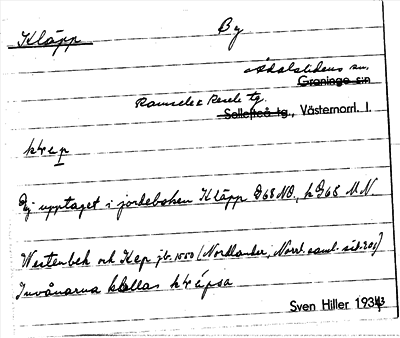 Kläpp By
Ådalslidens sn.
Graninge sn
Ramsele & Resele tg.
Sollefteå tg., Västernorrl. l.
Ej upptaget i jordeboken Kläpp D68 NO, h D68 MN
Westenbek och Klep jb. 1550 (Nordlander, Norrl. saml. sid. 201)
Invånarna kallas
Sven Hiller 1934